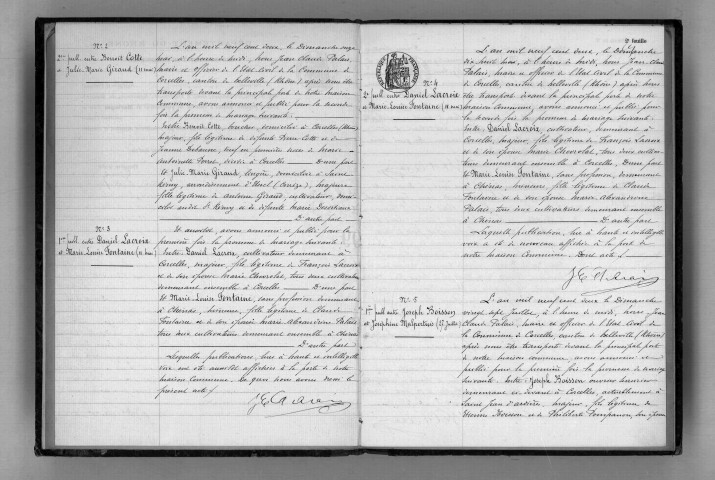 N° 2
2me publ. entre Benoit Cotte
et Julie Marie Giraud (11 mai)
L'an mil neuf cent deux, le Dimanche onze
mai, à l'heure de midi, nous Jean Claude Palais,
maire et officier de l'Etat Civil de la Commune de
Corcelles, canton de Belleville (Rhône) après nous être
transporté devant la principale porte de notre maison
Commune, avons annoncé et publié pour la
fois la promesse de mariage suivante:
Entre Benoit Cotte, domicilié à Corcelles
majeur, fils légitime de défunts Cotte et de
Jeanne
à Corcelles D'une part
Et Julie Marie Giraud, lingère, domiciliée à Saint
Rémy, arrondissement d'Ussel (Corrèze), majeure
fille légitime de Giraud, cultivateur, domi-
cilié audit St Rémy et de défunte Marie
D'autre part
N° 3
1ère publ. entre Daniel Lacroix
et Marie Louise Fontaine (11 mai)
Et aussitôt, avons annoncé et publié pour la
première fois la promesse de mariage suivante:
Entre Daniel Lacroix, cultivateur demeurant à
Corcelles, majeur, fils légitime de François Lacroix
et de son épouse Marie Chevrolat, tous deux cultivateurs
demeurant ensemble à Corcelles D'une part
Et Marie Louise Fontaine, sans profession, demeurant
à Chénas, mineure, fille légitime de Claude
Fontaine et de son épouse Marie Alexandrine Palais,
tous deux cultivateurs demeurant ensemble à Chénas
D'autre part
Lesquelles publications, lues à haute et intelligible
voix ont été aussitôt affichées à la porte de notre
maison Commune. De quoi nous avons dressé le
présent acte.
2e feuille
N° 4
2e publ. entre Daniel Lacroix
et Marie Louise Fontaine (18 mai)
L'an mil neuf cent deux, le Dimanche
dix huit mai, à l'heure de midi, nous Jean Claude
Palais, maire et officier de l'Etat Civil de la Commune
de Corcelles, canton de Belleville (Rhône) après nous
être transporté devant la principale porte de notre
maison Commune, avons annoncé et publié pour la
fois la promesse de mariage suivante:
Entre Daniel Lacroix, cultivateur, demeurant à
Corcelles, majeur, fils légitime de François Lacroix
et de son épouse Marie Chevrolat, tous deux cultiva-
teurs demeurant ensemble à Corcelles D'une part
Et Marie Louise Fontaine, sans profession, demeurant
à Chénas, mineure, fille légitime de Claude
Fontaine et de son épouse Marie Alexandrine
Palais, tous deux cultivateurs demeurant ensemble
à Chénas D'autre part
Laquelle publication, lue à haute et intelligible
voix a été de nouveau affichée à la porte de
notre maison Commune. Dont acte.
N° 5
1ère publ. entre Joseph Boisson
et Joséphine (27 Juillet)
L'an mil neuf cent deux le Dimanche
vingt sept juillet, à l'heure de midi, nous Jean
Claude Palais, maire et officier de l'Etat Civil de
la Commune de Corcelles canton de Belleville (Rhône)
après nous être transporté devant la principale porte
de notre maison commune, avons annoncé et
publié pour la première fois la promesse de mariage
suivante: Entre Joseph Boisson ouvrier
demeurant ci devant à Corcelles, actuellement à
Saint Jean d'Ardières, majeur, fils légitime de
Boisson et de Philiberte son épouse